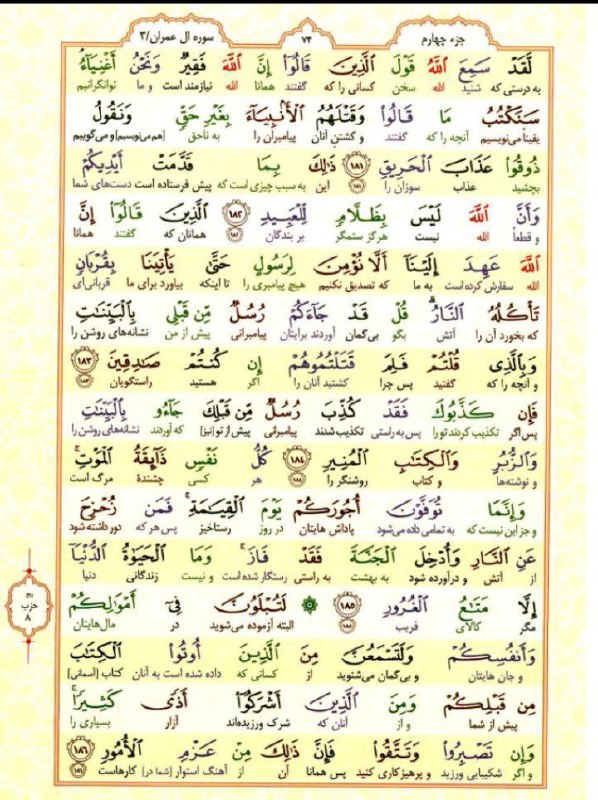 جزء چهارم
۷۴
سوره ال عمران/۳
لَّقَدْ سَمِعَ ٱللَّهُ قَوْلَ ٱلَّذِينَ قَالُوٓا۟ إِنَّ ٱللَّهَ فَقِيرٌ وَنَحْنُ أَغْنِيَآءُ
به درستی که شنید الله سخن کسانی را که گفتند همانا الله نیازمند است و ما توانگرانیم
سَنَكْتُبُ مَا قَالُوا۟ وَقَتْلَهُمُ ٱلْأَنۢبِيَآءَ بِغَيْرِ حَقٍّ وَنَقُولُ
یقیناً می‌نویسیم آنچه را که گفتند و کشتن آنان پیامبران را به ناحق [هم می‌نویسیم] و می‌گوییم
ذُوقُوا۟ عَذَابَ ٱلْحَرِيقِ ۱۸۱ ذَٰلِكَ بِمَا قَدَّمَتْ أَيْدِيكُمْ
بچشید عذاب سوزان را ۱۸۱ این به سبب چیزی است که پیش فرستاده است دست‌های شما
وَأَنَّ ٱللَّهَ لَيْسَ بِظَلَّامٍ لِّلْعَبِيدِ ۱۸۲ ٱلَّذِينَ قَالُوٓا۟ إِنَّ
و قطعاً الله نیست هرگز ستمگر بر بندگان ۱۸۲ همانان که گفتند همانا
ٱللَّهَ عَهِدَ إِلَيْنَآ أَلَّا نُؤْمِنَ لِرَسُولٍ حَتَّىٰ يَأْتِيَنَا بِقُرْبَانٍ
الله سفارش کرده است به ما که تصدیق نکنیم هیچ پیامبری را تا اینکه بیاورد برای ما قربانی‌ای
تَأْكُلُهُ ٱلنَّارُ ۗ قُلْ قَدْ جَآءَكُمْ رُسُلٌ مِّن قَبْلِى بِٱلْبَيِّنَٰتِ
که بخورد آن را آتش بگو بی‌گمان آوردند برایتان پیامبرانی پیش از من نشانه‌های روشن را
وَبِٱلَّذِى قُلْتُمْ فَلِمَ قَتَلْتُمُوهُمْ إِن كُنتُمْ صَٰدِقِينَ ۱۸۳
و آنچه را که گفتید پس چرا کشتید آنان را اگر هستید راستگویان ۱۸۳
فَإِن كَذَّبُوكَ فَقَدْ كُذِّبَ رُسُلٌ مِّن قَبْلِكَ جَآءُو بِٱلْبَيِّنَٰتِ
پس اگر تکذیب کردند تو را پس به راستی تکذیب شدند پیامبرانی پیش از تو [نیز] که آوردند نشانه‌های روشن را
وَٱلزُّبُرِ وَٱلْكِتَٰبِ ٱلْمُنِيرِ ۱۸۴ كُلُّ نَفْسٍ ذَآئِقَةُ ٱلْمَوْتِ ۗ
و نوشته‌ها و کتاب روشنگر را ۱۸۴ هر کسی چشندهٔ مرگ است
وَإِنَّمَا تُوَفَّوْنَ أُجُورَكُمْ يَوْمَ ٱلْقِيَٰمَةِ ۖ فَمَن زُحْزِحَ
و جز این نیست که به تمامی داده می‌شود پاداش هایتان در روز رستاخیز پس هر که دور داشته شود
عَنِ ٱلنَّارِ وَأُدْخِلَ ٱلْجَنَّةَ فَقَدْ فَازَ ۗ وَمَا ٱلْحَيَوٰةُ ٱلدُّنْيَآ
از آتش و درآورده شود به بهشت به راستی رستگار شده است و نیست زندگانی دنیا
إِلَّا مَتَٰعُ ٱلْغُرُورِ ۱۸۵ لَتُبْلَوُنَّ فِىٓ أَمْوَٰلِكُمْ
مگر کالای فریب ۱۸۵ البته آزموده می‌شوید در مال‌هایتان
ربع
حزب
۸
وَأَنفُسِكُمْ وَلَتَسْمَعُنَّ مِنَ ٱلَّذِينَ أُوتُوا۟ ٱلْكِتَٰبَ
و جان هایتان و بی‌گمان می‌شنوید از کسانی که داده شده است به آنان کتاب [آسمانی]
مِن قَبْلِكُمْ وَمِنَ ٱلَّذِينَ أَشْرَكُوٓا۟ أَذًى كَثِيرًا ۚ
پیش از شما و از آنان که شرک ورزیده‌اند آزار بسیاری را
وَإِن تَصْبِرُوا۟ وَتَتَّقُوا۟ فَإِنَّ ذَٰلِكَ مِنْ عَزْمِ ٱلْأُمُورِ ۱۸۶
و اگر شکیبایی ورزید و پرهیزکاری کنید پس همانا آن از آهنگ استوار [شما در] کارهاست ۱۸۶